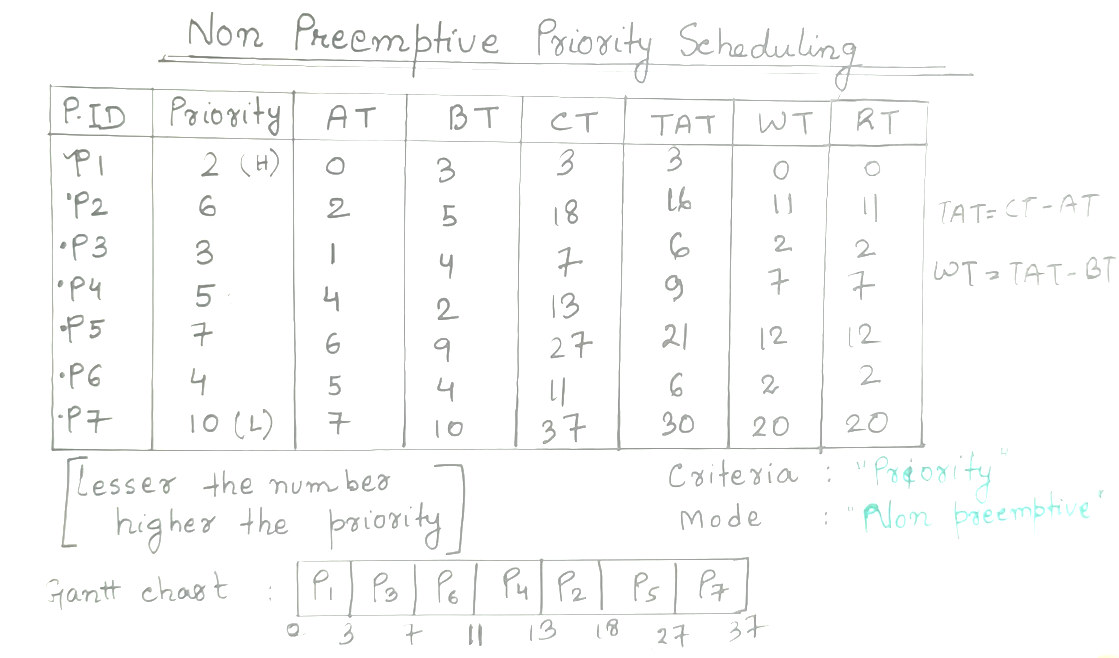 Non Preemptive Priority Scheduling
P.ID Priority AT BT CT TAT WT RT
P1 2 (H) 0 3 3 3 0 0
P2 6 2 5 18 16 11 11
TAT= CT-AT
P3 3 1 4 7 6 2 2
WT = TAT-BT
P4 5 4 2 13 9 7 7
P5 7 6 9 27 21 12 12
P6 4 5 4 11 6 2 2
P7 10 (L) 7 10 37 30 20 20
[Lesser the number
higher the priority]
Criteria : "Priority"
Mode : "Non preemptive"
Gantt chart : P1 P3 P6 P4 P2 P5 P7
0 3 7 11 13 18 27 37